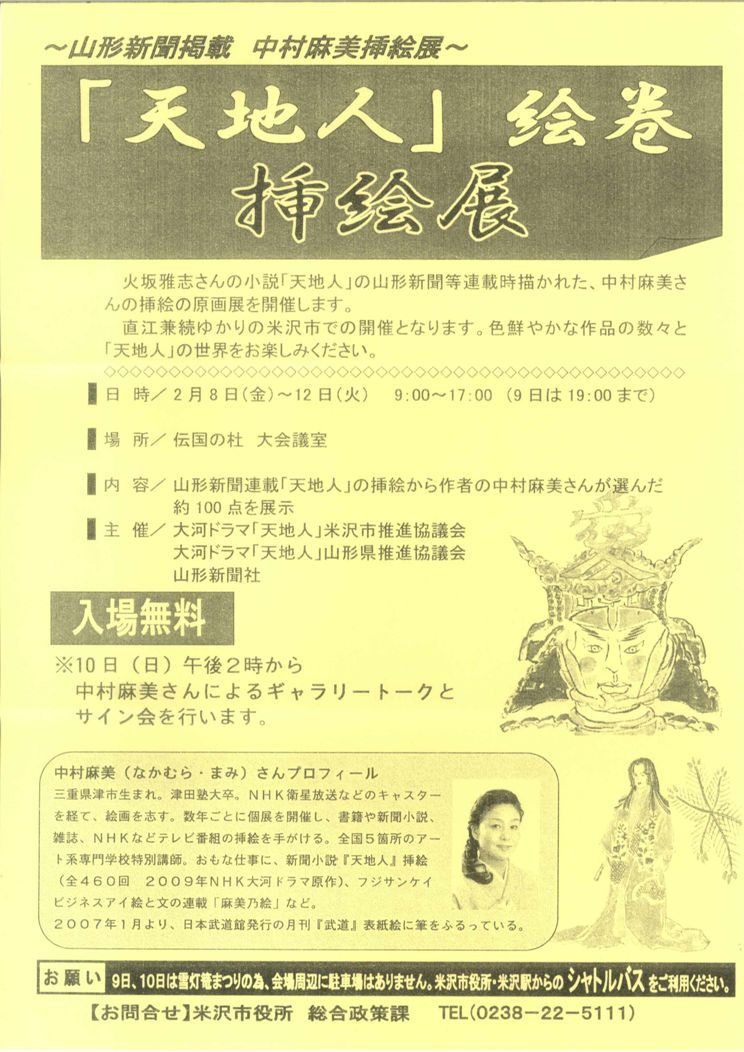 ～山形新聞掲載 中村麻美挿絵展～
「天地人」絵巻
挿絵展
火坂雅志さんの小説「天地人」の山形新聞等連載時描かれた、中村麻美さ
んの挿絵の原画展を開催します。
直江兼続ゆかりの米沢市での開催となります。色鮮やかな作品の数々と
「天地人」の世界をお楽しみください。
◇◇◇◇◇◇◇◇◇◇◇◇◇◇◇◇◇◇◇◇◇◇◇◇◇◇◇◇◇◇◇◇◇◇◇◇◇◇◇◇◇◇◇◇◇◇
日 時／2月8日(金)～12日(火) 9:00～17:00 (9日は19:00まで)
場 所／伝国の杜 大会議室
内 容／山形新聞連載「天地人」の挿絵から作者の中村麻美さんが選んだ
約100点を展示
主 催／大河ドラマ「天地人」米沢市推進協議会
大河ドラマ「天地人」山形県推進協議会
山形新聞社
入場無料
※10日（日）午後２時から
中村麻美さんによるギャラリートークと
サイン会を行います。
中村麻美（なかむら・まみ）さんプロフィール
三重県津市生まれ。津田塾大卒。ＮＨＫ衛星放送などのキャスター
を経て、絵画を志す。数年ごとに個展を開催し、書籍や新聞小説、
雑誌、ＮＨＫなどテレビ番組の挿絵を手がける。全国５箇所のアー
ト系専門学校特別講師。おもな仕事に、新聞小説『天地人』挿絵
（全４６０回 ２００９年ＮＨＫ大河ドラマ原作）、フジサンケイ
ビジネスアイ絵と文の連載「麻美乃絵」など。
２００７年１月より、日本武道館発行の月刊『武道』表紙絵に筆をふるっている。
お願い 9日、10日は雪灯篭まつりの為、会場周辺に駐車場はありません。米沢市役所・米沢駅からのシャトルバスをご利用ください。
【お問合せ】米沢市役所 総合政策課 TEL(0238－22－5111)